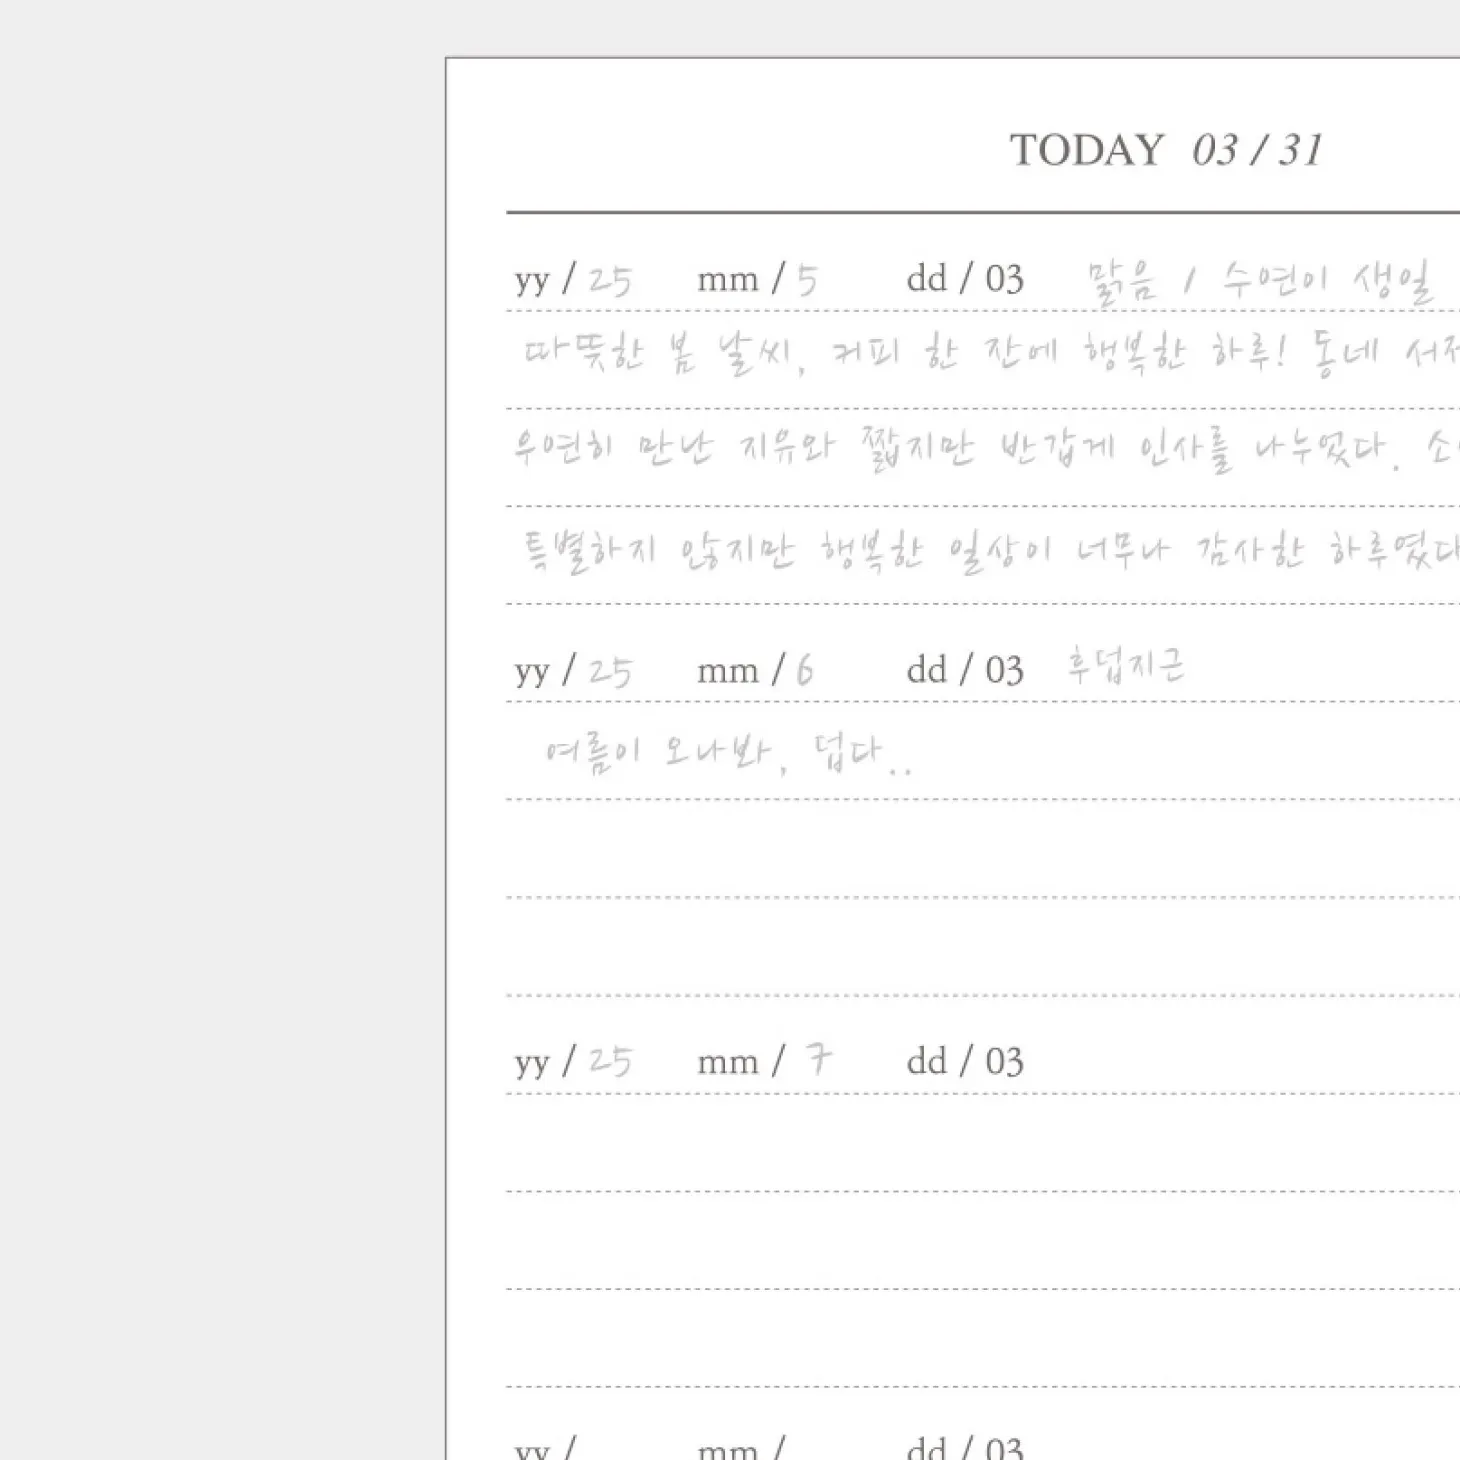 TODAY 03 / 31
yy / 25 mm / 5 dd / 03 맑음 / 수연이 생일
따뜻한 봄 날씨, 커피 한 잔에 행복한 하루! 동네
우연히 만난 지유와 짧지만 반갑게 인사를 나누었다.
특별하지 않지만 행복한 일상이 너무나 감사한 하루였다
yy / 25 mm / 6 dd / 03 후덥지근
여름이 오나봐, 덥다..
yy / 25 mm / 7 dd / 03
yy / mm / dd / 03